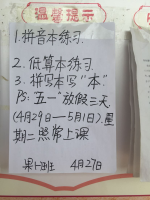 温馨提示
1.拼音本练习.
2.低算本练习.
3.拼写本写"本."
PS:"五一"放假三天
(4月29日—5月1日).星
期二照常上课
果1班 4月27日